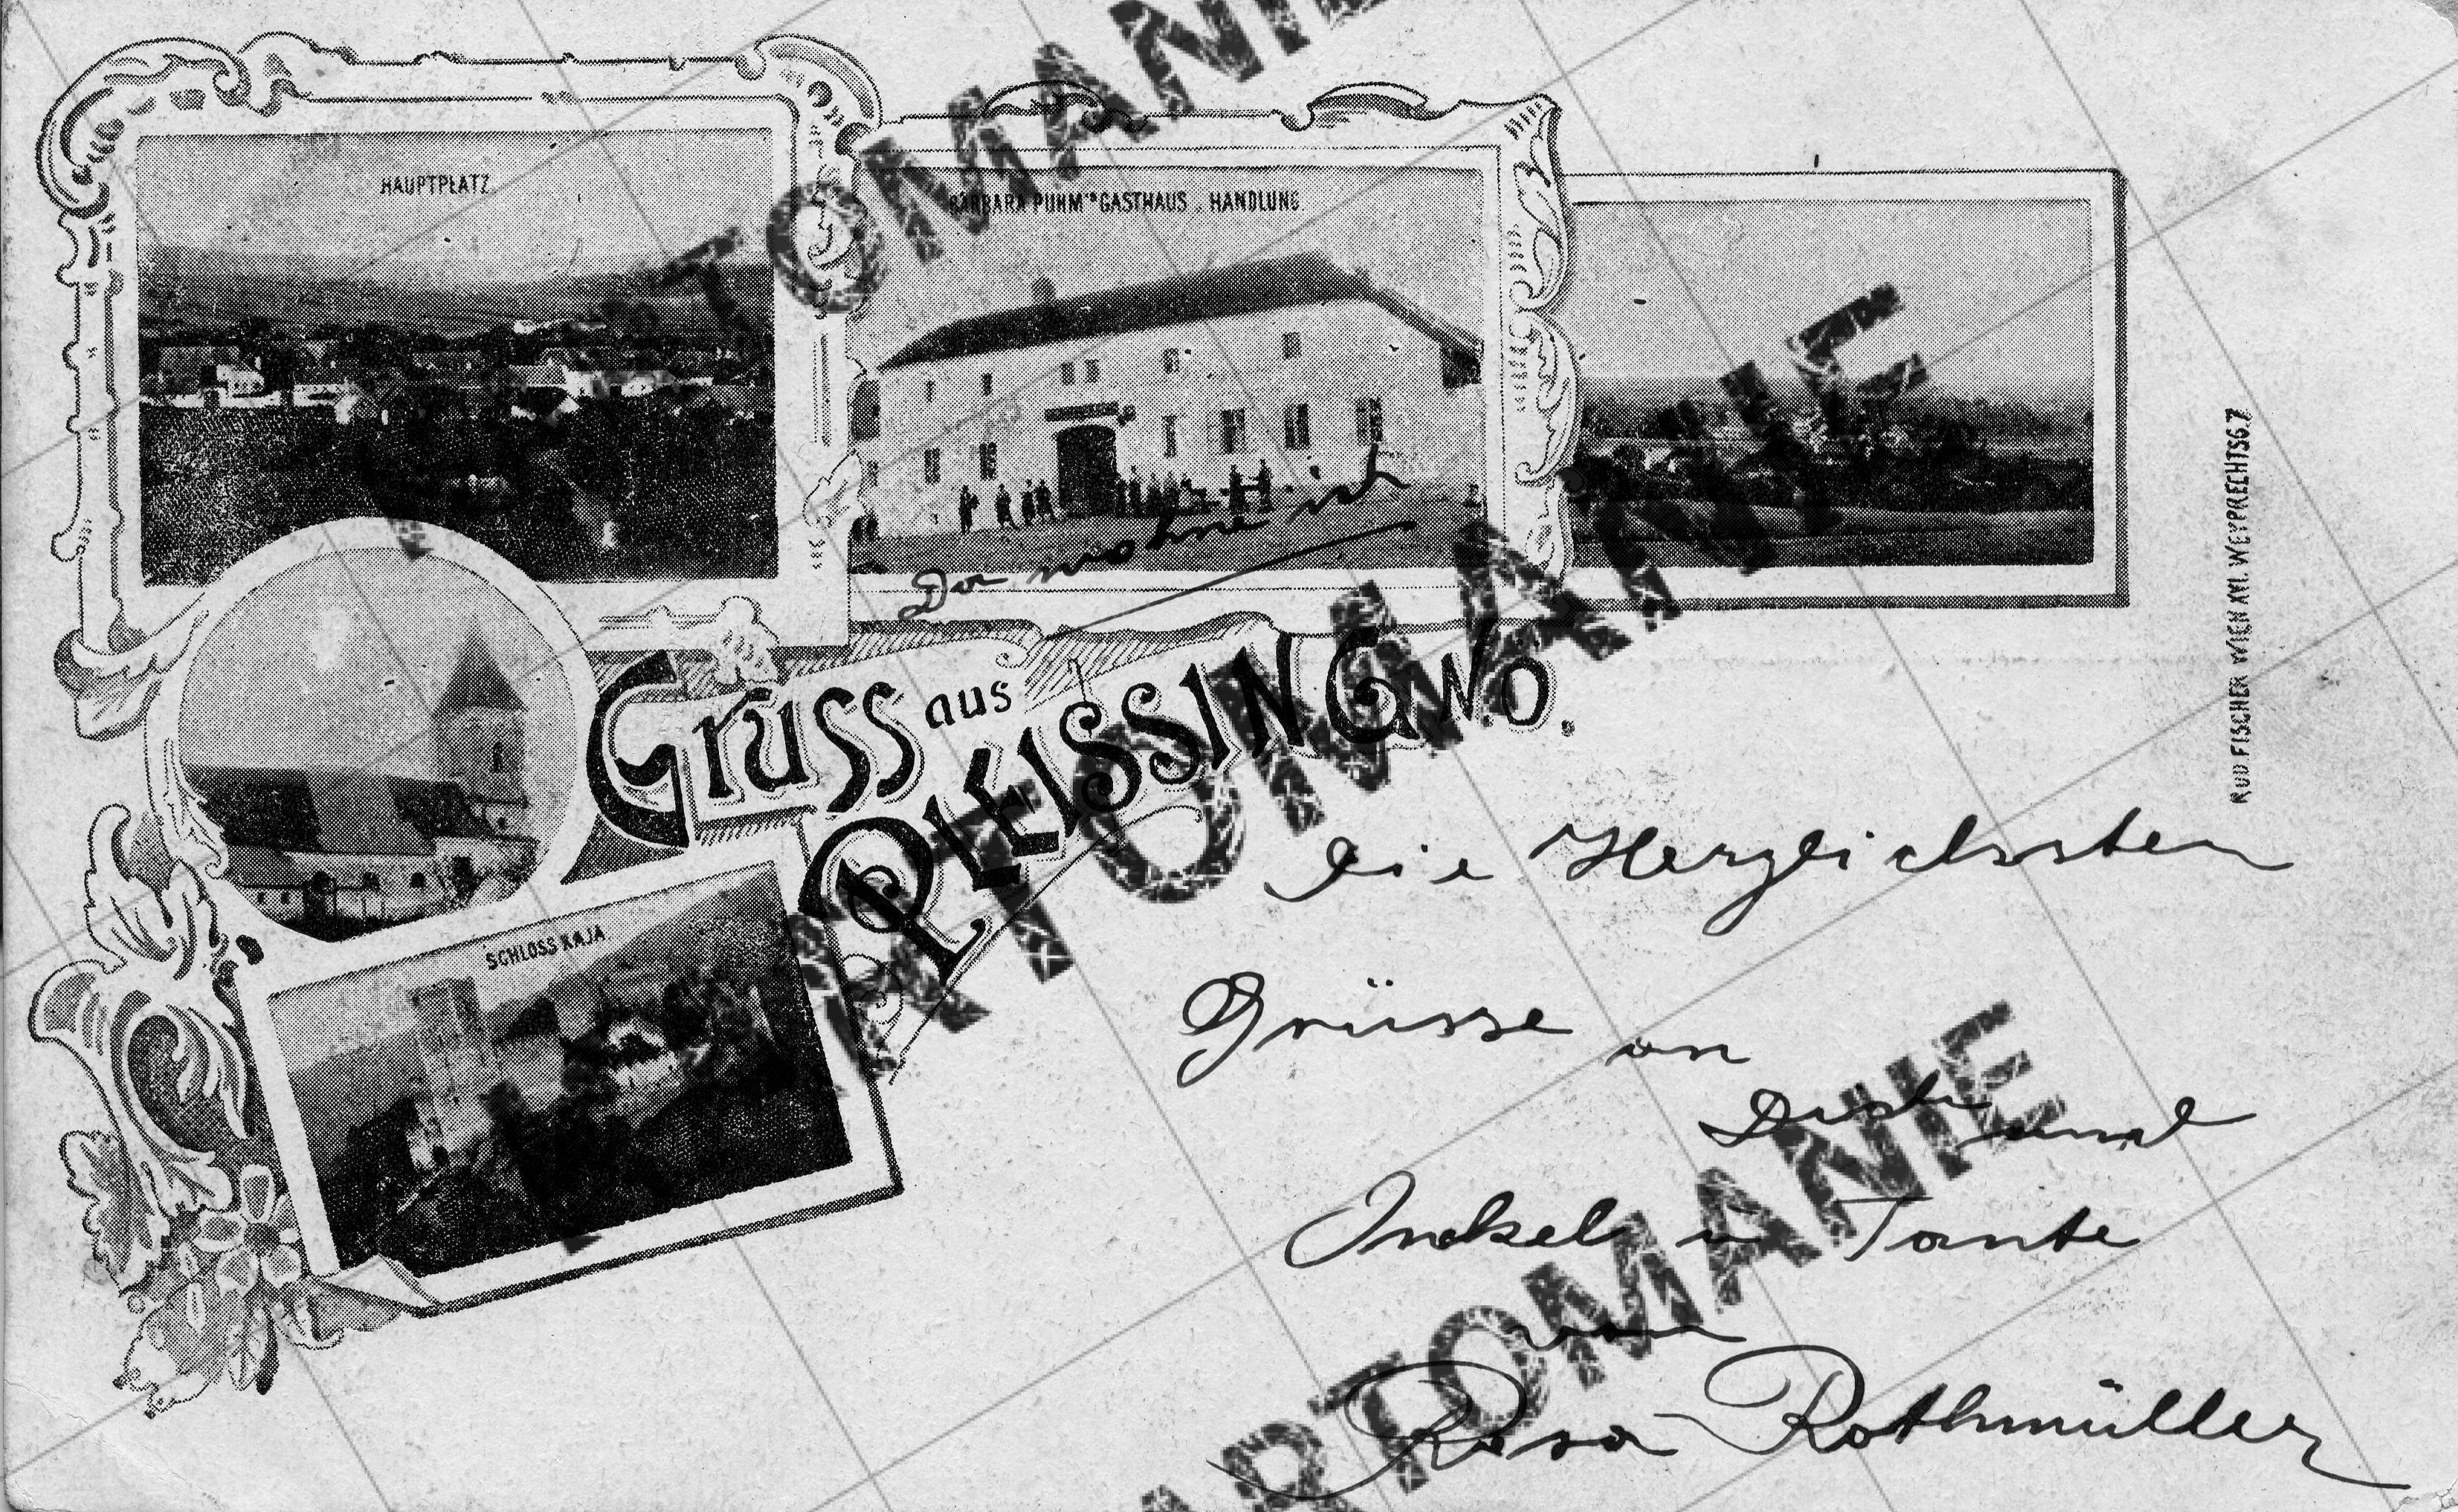 HAUPTPLATZ
BARBARA PUHM'S GASTHAUS U. HANDLUNG
Da wohne ich
Gruss aus
PLEISSING N.Ö.
SCHLOSS KAJA
RUD FISCHER WIEN XVI. WEYPRECHTSG. 7
Die Herzlichsten
Grüsse an
Dich und
Onkel u Tante
von
Rosa Rothmüller
CARTOMANIE
CARTOMANIE
CARTOMANIE